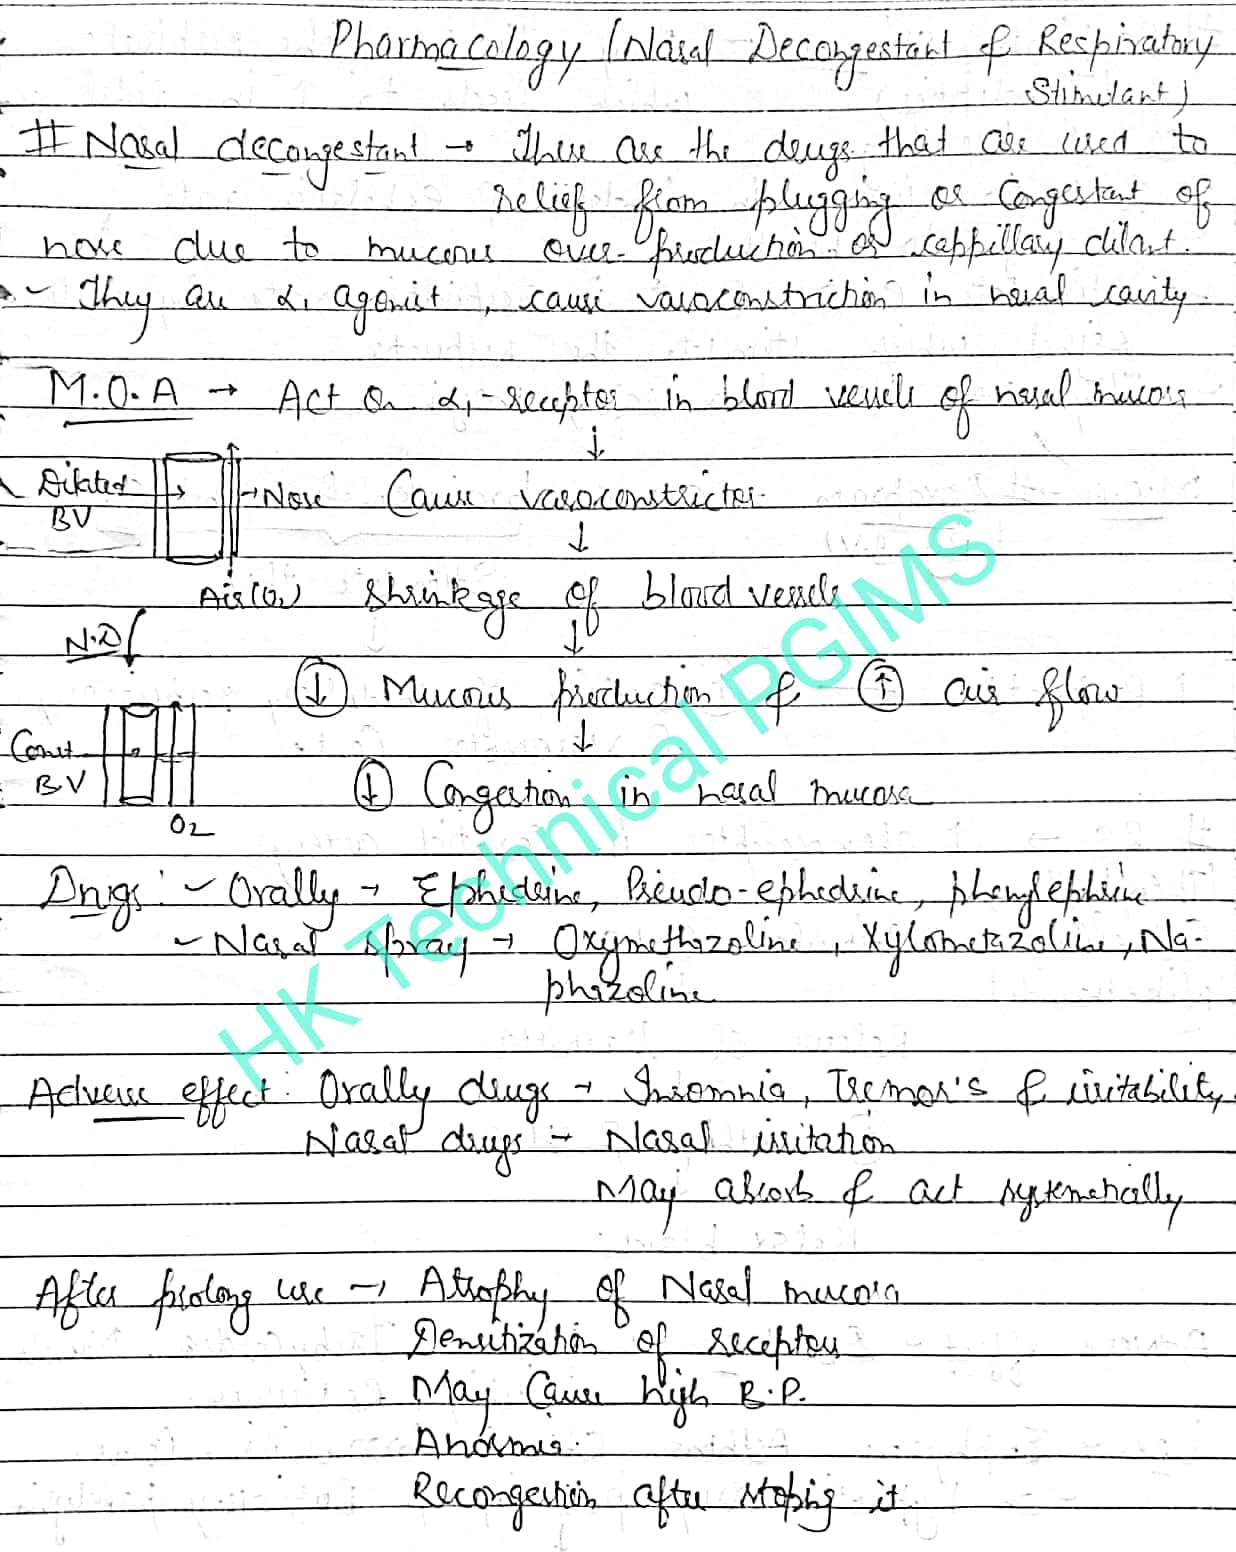 Pharmacology (Nasal Decongestant & Respiratory
Stimulant)
# Nasal decongestant → These are the drugs that are used to
relief from plugging or Congestant of
nose due to mucous over-production or cappillary dilant.
~ They are α₁ agonist, cause vasoconstriction in nasal cavity.
M.O.A → Act on α₁-receptor in blood vessels of nasal mucosa
↓
Dilated → Nose Cause vasoconstrictor.
BV
↓
Air(O₂) Shrinkage of blood vessels
N.D ↓
(↓) Mucous production & (↑) air flow
Const ↓
BV (↓) Congestion in nasal mucosa
O2
Drugs: ~ Orally → Ephidrine, Pseudo-ephedrine, phenylephrine
~ Nasal spray → Oxymethazoline, Xylometazoline, Na-
phazoline
Adverse effect: Orally drugs → Insomnia, Tremor's & irritability,
Nasal drugs → Nasal irritation
May absorb & act systematically
After prolong use → Atrophy of Nasal mucosa
Densitization of receptors
May Cause high B.P.
Anosmia.
Recongestion after stoping it.
HK Technical PGIMS